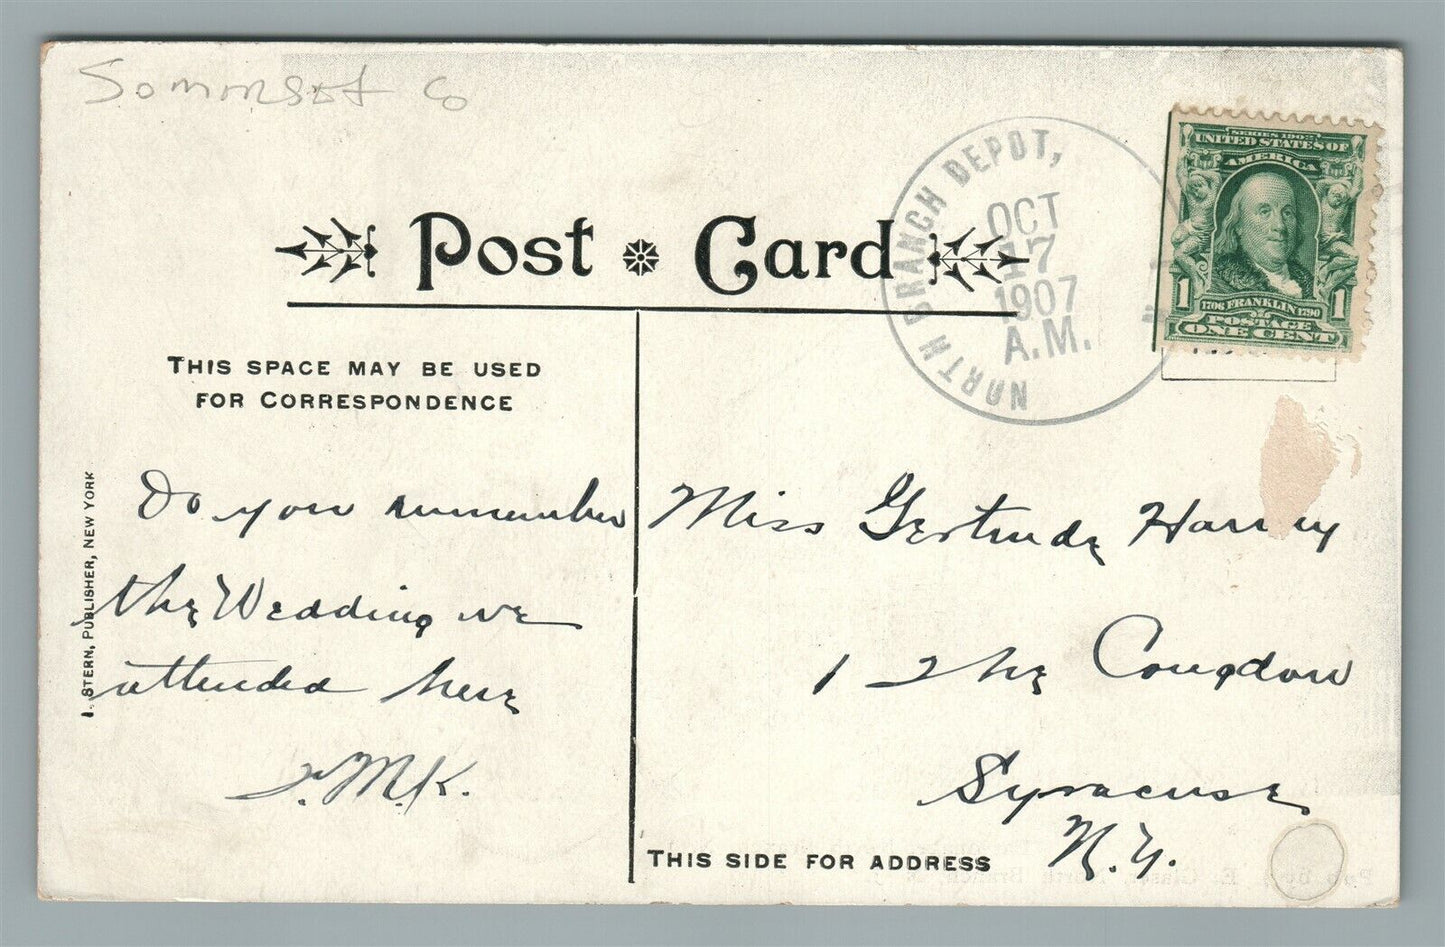 Somerset Co
Post Card
NORTH BRANCH DEPOT,
OCT
17
1907
A.M.
SERIES 1902
UNITED STATES OF
AMERICA
1 1706 FRANKLIN 1790 1
POSTAGE
ONE CENT
THIS SPACE MAY BE USED
FOR CORRESPONDENCE
I. STERN, PUBLISHER, NEW YORK
Do you remember
the Wedding we
attended here
T.M.K.
Miss Gertrude
1 The Congdon
Syracuse
N.Y.
THIS SIDE FOR ADDRESS